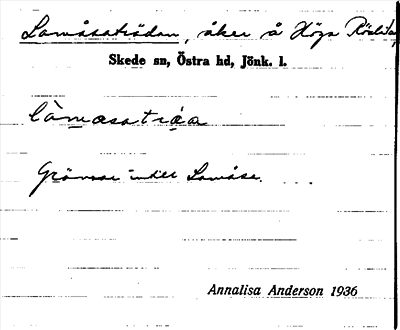 Lamåsaträdan, åker å Höga
Skede sn, Östra hd, Jönk. l.
Gränsar intill Lamåsa.
Annalisa Anderson 1936